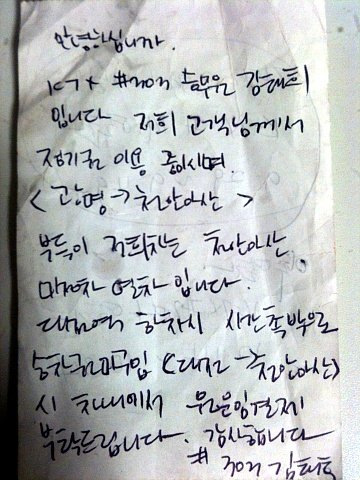 안녕하십니까.
KTX #303 승무원 김태희
입니다 저희 고객님께서
정기권 이용 중이시며
<광명→천안아산>
부득이 저희차는 천안아산
마지막 열차입니다.
대전역 하차시 시간촉박으로
승차권미구입 (대전→천안아산)
시 차내에서 무운임결제
부탁드립니다. 감사합니다
# 303 김태희